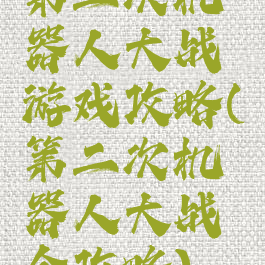 第二次机
器人大战
游戏攻略(
第二次机
器人大战
全攻略)